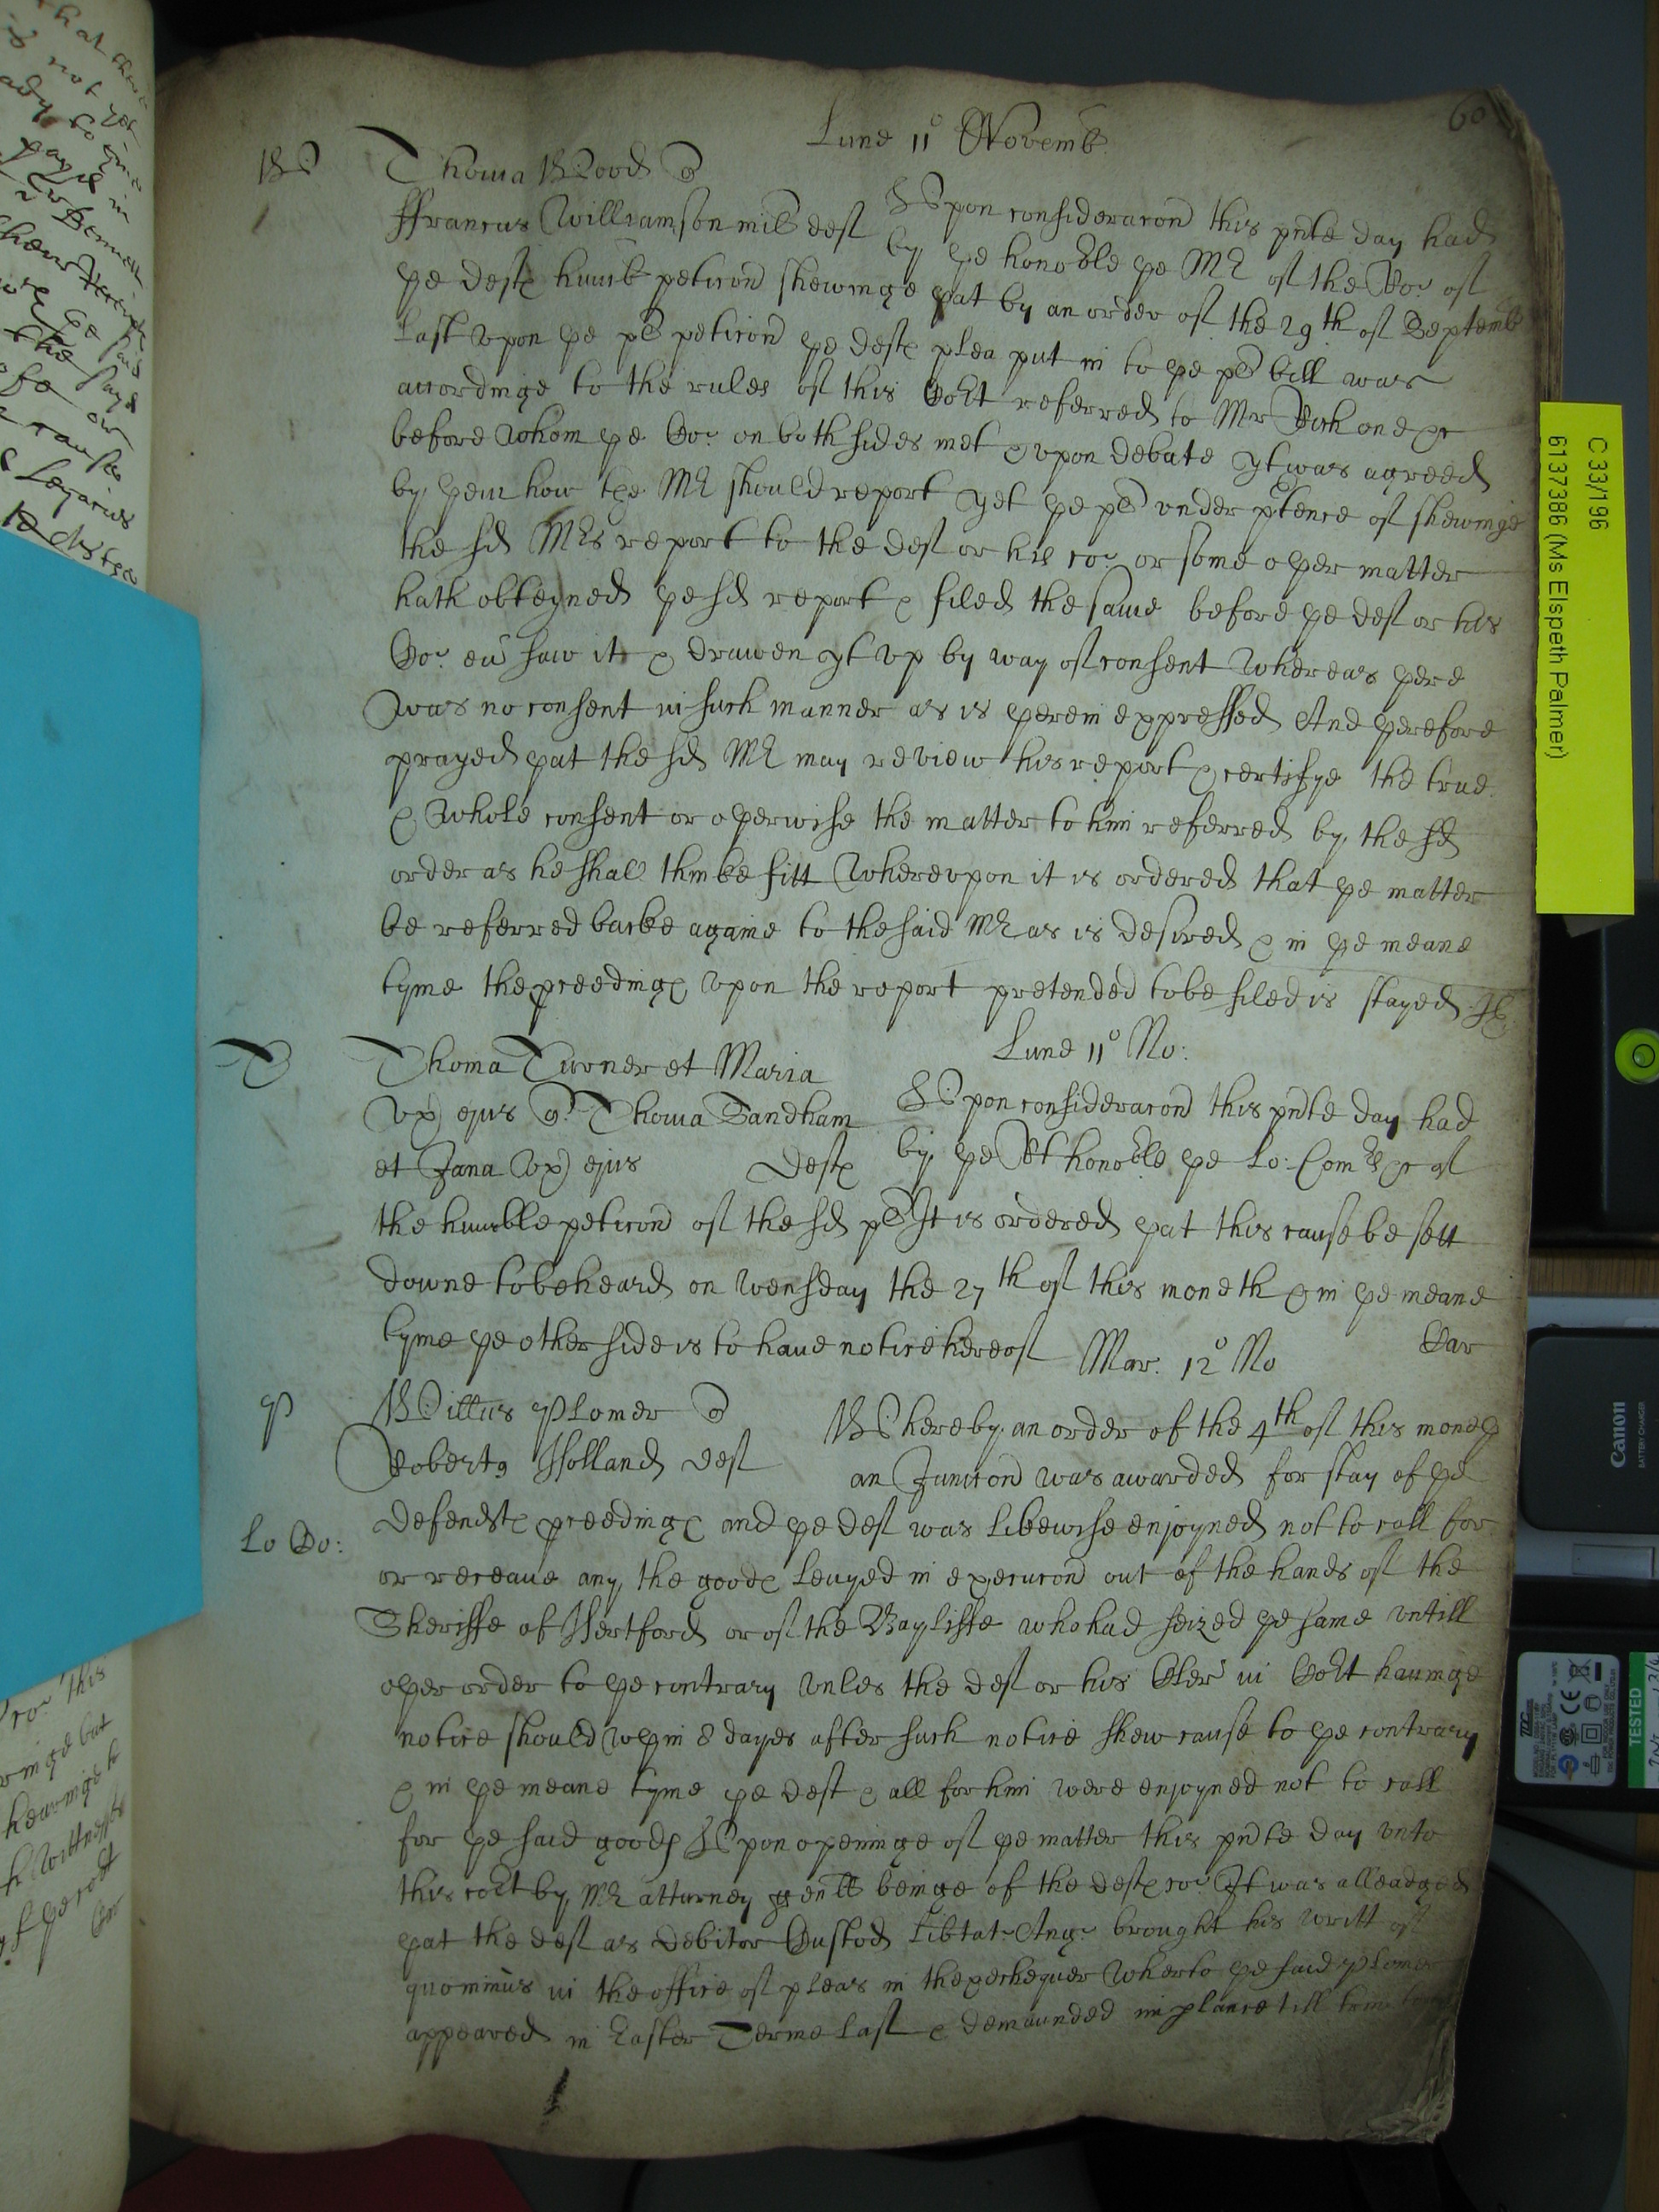 60
Lune 11° Novemb
W Thoma Wood q
ffrancus Williamson mil def Upon consideracon this pnte day had
by ye honoble ye Mr of the Ro: of
ye deftes humb peticon shewinge yat by an order of the 29th of Septemb
last vpon ye pl peticon ye deftes plea put in to ye pl bill was
accordinge to the rules of this Cort referred to Mr
before whom ye Co: on both sides met & vpon debate yt was agreed
by yem how the Mr should report yet ye pl vnder ptence of shewinge
the sd Mrs report to the def or his co: or some oyer matter
hath obteyned ye sd report & filed the same before ye def or his
Co: eu saw it & drawen yt vp by way of consent whereas yere
was no consent in such manner as is yerein expressed And yerefore
prayed yat the sd Mr may review his report & certifye the true
& whole consent or oyerwise the matter to him referred by the sd
order as he shall thinke fitt Wherevpon it is ordered that ye matter
be referred backe againe to the said Mr as is desired & in ye meane
tyme the pceedinges vpon the report pretended to be filed is stayed
Lune 11° No:
T Thoma Turner et Maria
vx ejus q Thoma Sandham
et Jana vx ejus deftes
Upon consideracon this pnte day had
by ye Rt honoble ye Lo: Comrs &c of
the humble peticon of the sd pl It is ordered yat this cause be sett
downe to be heard on Wensday the 27th of this moneth & in ye meane
tyme ye other side is to haue notice hereof Car
Mar. 12° No
P Willus Plomer q
Robertq Holland def
Whereby an order of the 4th of this money
an Junccon was awarded for stay of ye
Lo Co:
defendtes pceedinges and ye def was likewise enjoyned not to call for
or receaue any the goodes leuyed in execucon out of the hands of the
Sheriffe of Hertford or of the Bayliffe who had seized ye same vntill
oyer order to ye contrary vnles the def or his Cler in Cort hauinge
notice should wyin 8 dayes after such notice shew cause to ye contrary
& in ye meane tyme ye deft & all for him were enjoyned not to call
for ye said goodes Upon openinge of ye matter this pnte day vnto
this cort by Mr atturney genll beinge of the deftes co: It was alleadged
yat the def as debitor Custod Libtat Ang brought his writt of
quominus in the office of pleas in thexchequer wherto ye said Plomer
appeared in Easter Terme last & demaunded imparlance till
C 33/196
6137386 (Ms Elspeth Palmer)
Canon
BATTERY CHARGER
TESTED